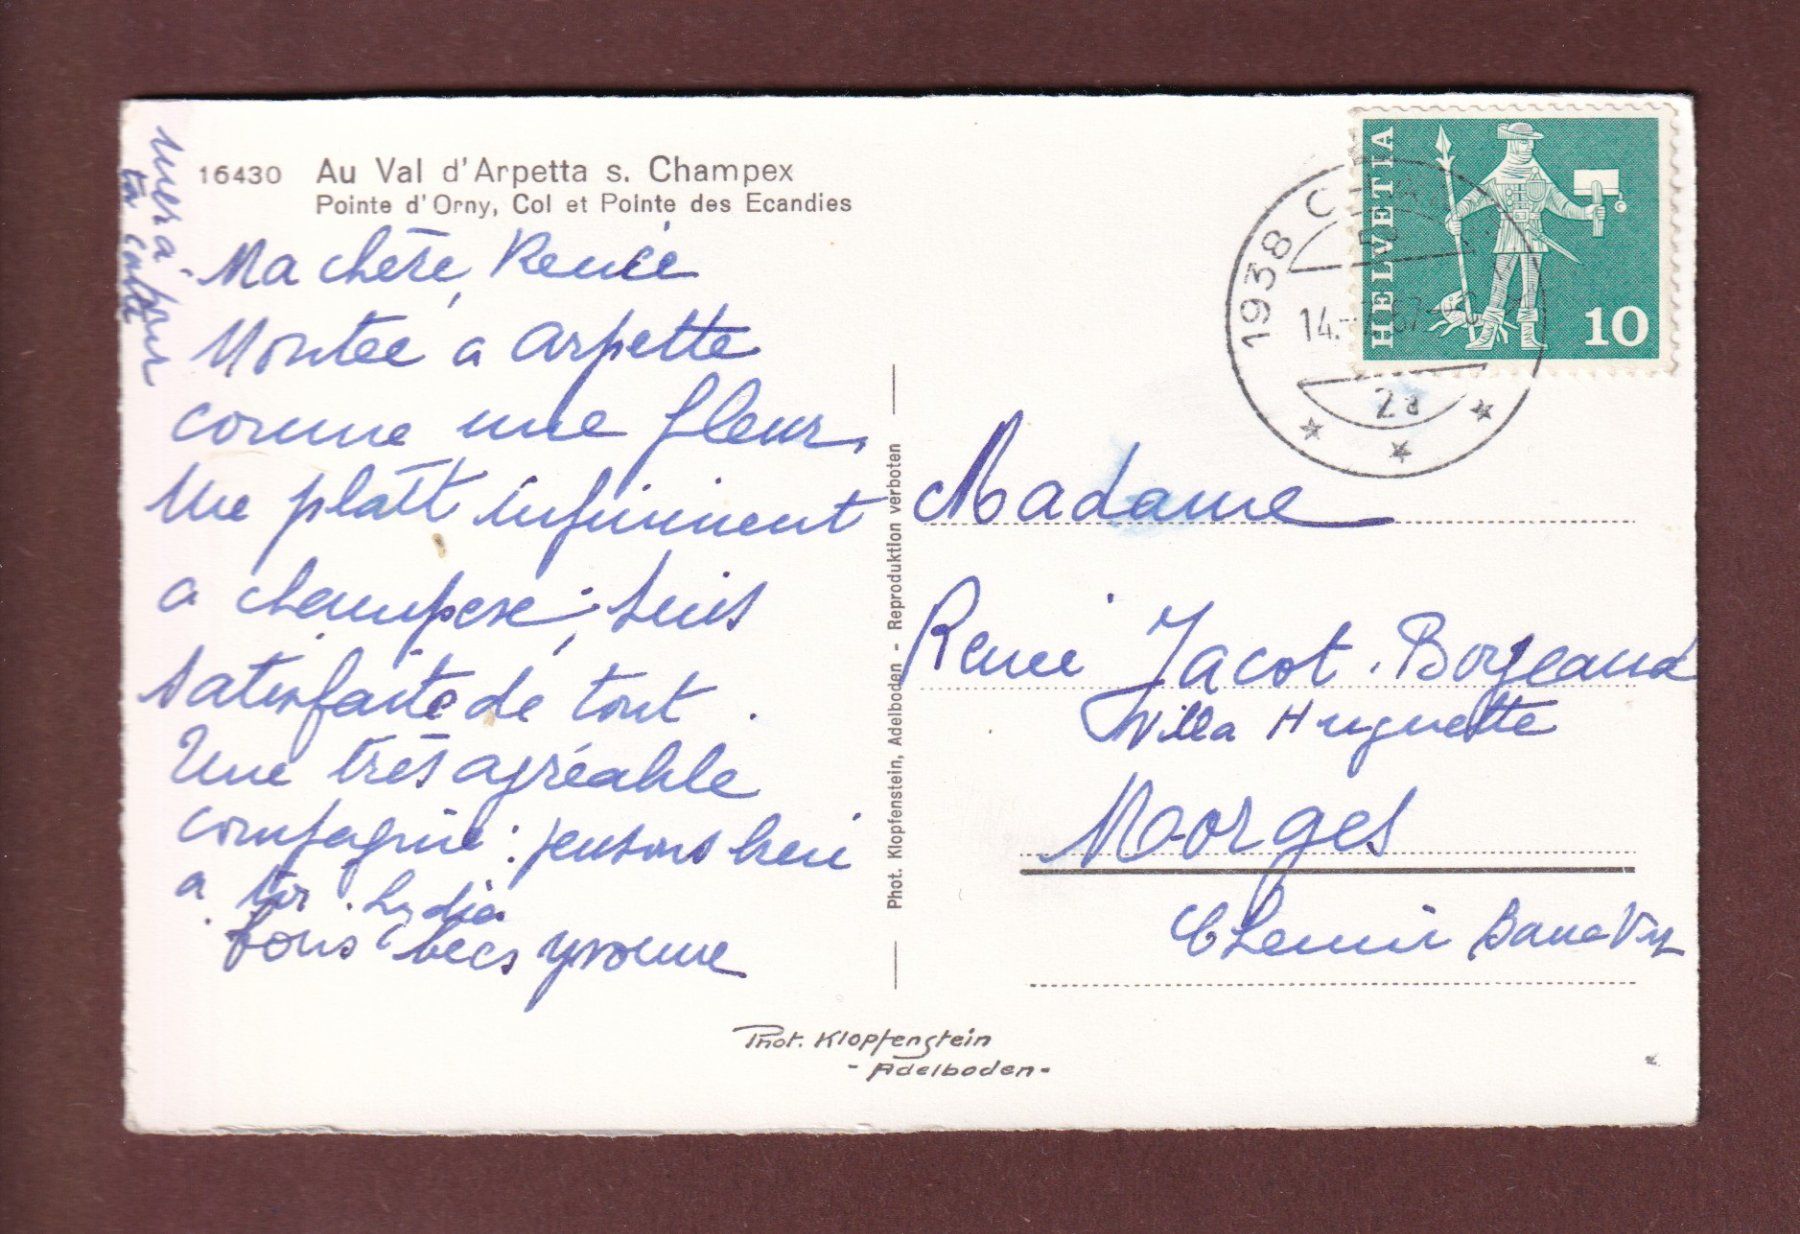 16430 Au Val d'Arpetta s. Champex
Pointe d'Orny, Col et Pointe des Ecandies
Ma chère Renée
Montée a Arpette
comme une fleur,
Me plait infiniment
a champex; suis
satisfaite de tout.
Une très agréable
compagnie: pensons bien
a toi. Lydia
bons becs Yvonne
merci pour
ta carte
Phot. Klopfenstein, Adelboden - Reproduktion verboten
HELVETIA
10
1938 CHA
14.
2a
Madame
Renée Jacot-Borgeaud
Villa Huguette
Morges
Chemin
Phot. Klopfenstein
- Adelboden -